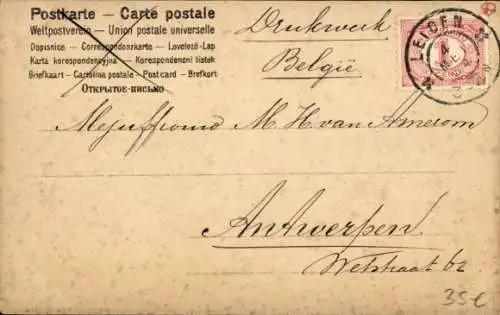 Postkarte – Carte postale
Weltpostverein – Union postale universelle
Dopisnice – Correspondenzkarte – Levelező-Lap
Karta korespondencyjna – Korespondenční lístek
Briefkaart – Cartolina postale – Postcard – Brefkort
Открытое-письмо
Drukwerk
België
LEIDEN
Mejuffrouw M. H. van Amerom
Antwerpen.
Wetstraat 62
35€